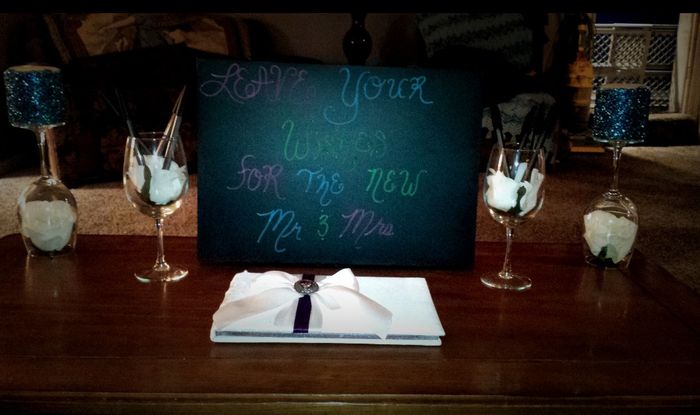 LEAVE Your
Wishes
for The New
Mr & Mrs